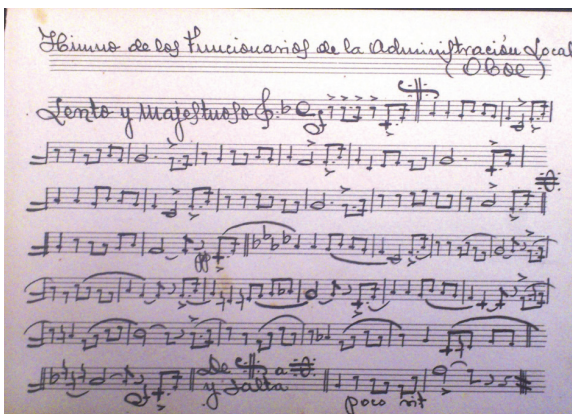 Himno de los Funcionarios de la Administración Local
(Oboe)
Lento y Majestuoso
f
pp
f
De a
y salta
poco rit